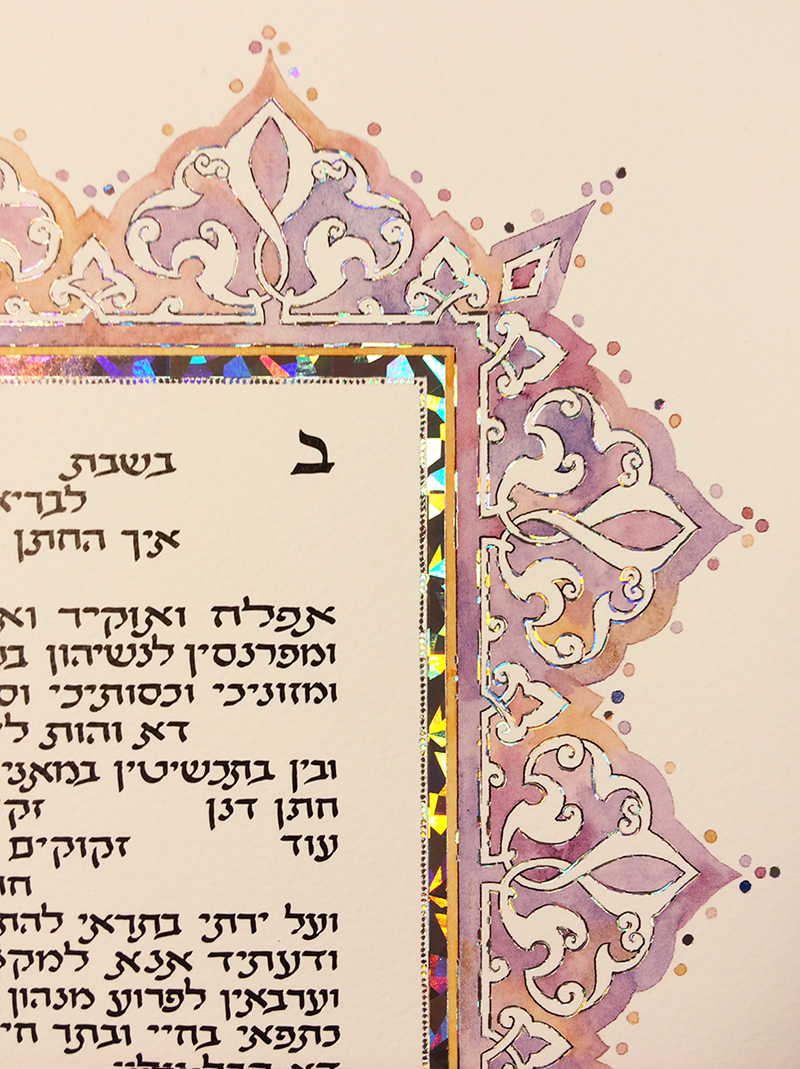 ב בשבת
לבריא
איך החתן
אפלח ואוקיר וא
ומפרנסין לנשיהון בק
ומזוניכי וכסותיכי וס
דא והות לי
ובין בתכשיטין במאני
חתן דנן זק
עוד זקוקים
חו
ועל ירתי בתראי להת
ודעתיד אנא למקנ
וערבאין לפרוע מנהון
כתפאי בחיי ובתר חיי